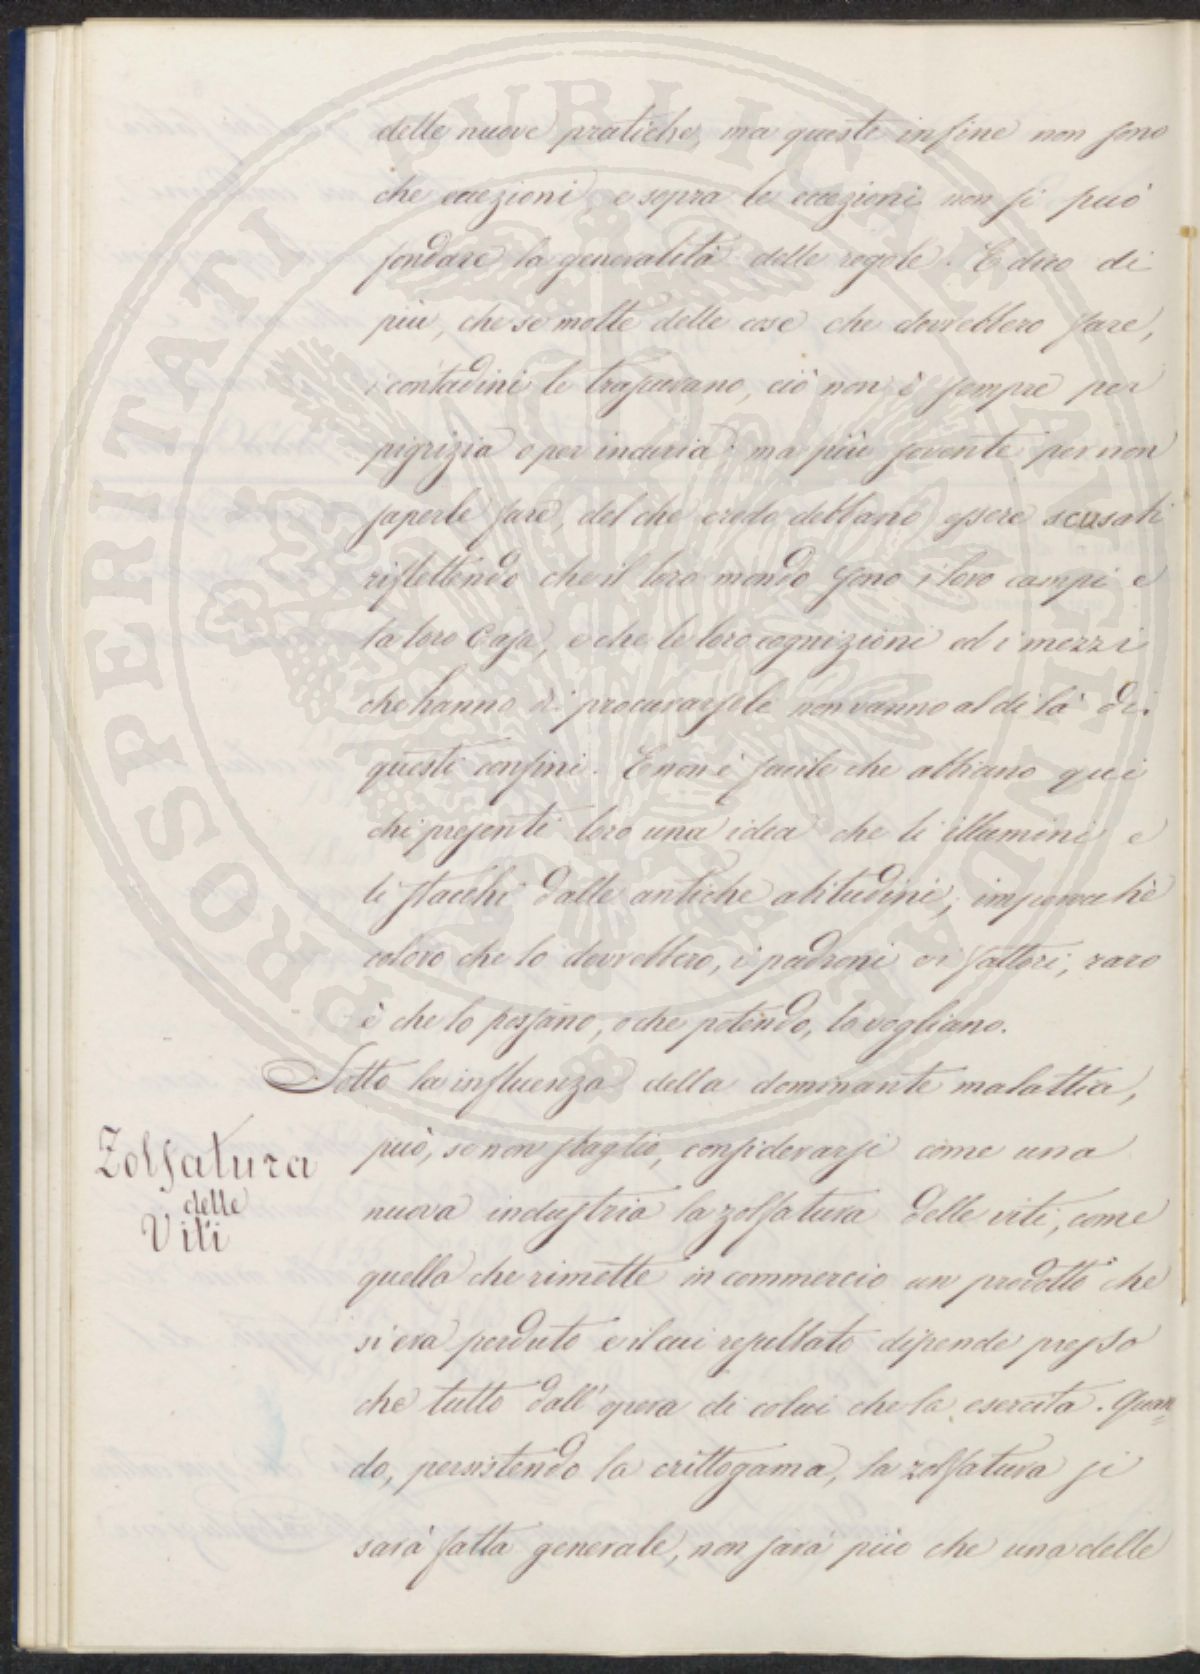 delle nuove pratiche, ma queste infine non sono
che eccezioni e sopra le eccezioni non si può
fondare la generalità delle regole. E dico di
più, che se molte delle cose che dovrebbero fare,
i contadini le trascurano, ciò non è sempre per
pigrizia o per incuria; ma più sovente per non
saperle fare, del che credo debbano essere scusati
riflettendo che il loro mondo sono i loro campi e
la loro Casa, e che le loro cognizioni ed i mezzi
che hanno di procurarsele non vanno al di là di
questi confini. E non è facile che abbiano qui
chi presenti loro una idea che li illumini e
li stacchi dalle antiche abitudini; imperocchè
coloro che lo dovrebbero, i padroni o i fattori, raro
è che lo possano, o che potendo, lo vogliano.
Sotto la influenza della dominante malattia,
Zolfatura
delle
Viti
può, se non sbaglio, considerarsi come una
nuova industria la zolfatura delle viti, come
quella che rimette in commercio un prodotto che
si era perduto e il cui resultato dipende presso
che tutto dall'opera di colui che la esercita. Quan=
do, persistendo la crittogama, la zolfatura si
sarà fatta generale, non sarà più che una delle
PVBLICAE
PROSPERITATI
AVGENDAE